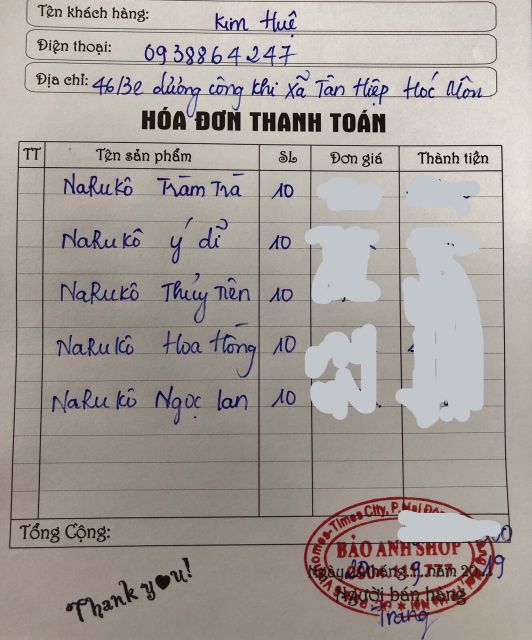 Tên khách hàng: Kim Huệ
Điện thoại: 0938864247
Địa chỉ: 46/3e dương công khi xã Tân Hiệp Hóc Môn
HÓA ĐƠN THANH TOÁN
TT Tên sản phẩm SL Đơn giá Thành tiền
NaRuKô Tràm Trà 10
NaRuKô ý dĩ 10
NaRuKô Thủy Tiên 10
NaRuKô Hoa Hồng 10
NaRuKô Ngọc lan 10
Tổng Cộng:
Homes-Times City, P. Mai
BẢO ANH SHOP
Ngày 20 tháng 9 năm 2019
Người bán hàng
Thank you!
Trang